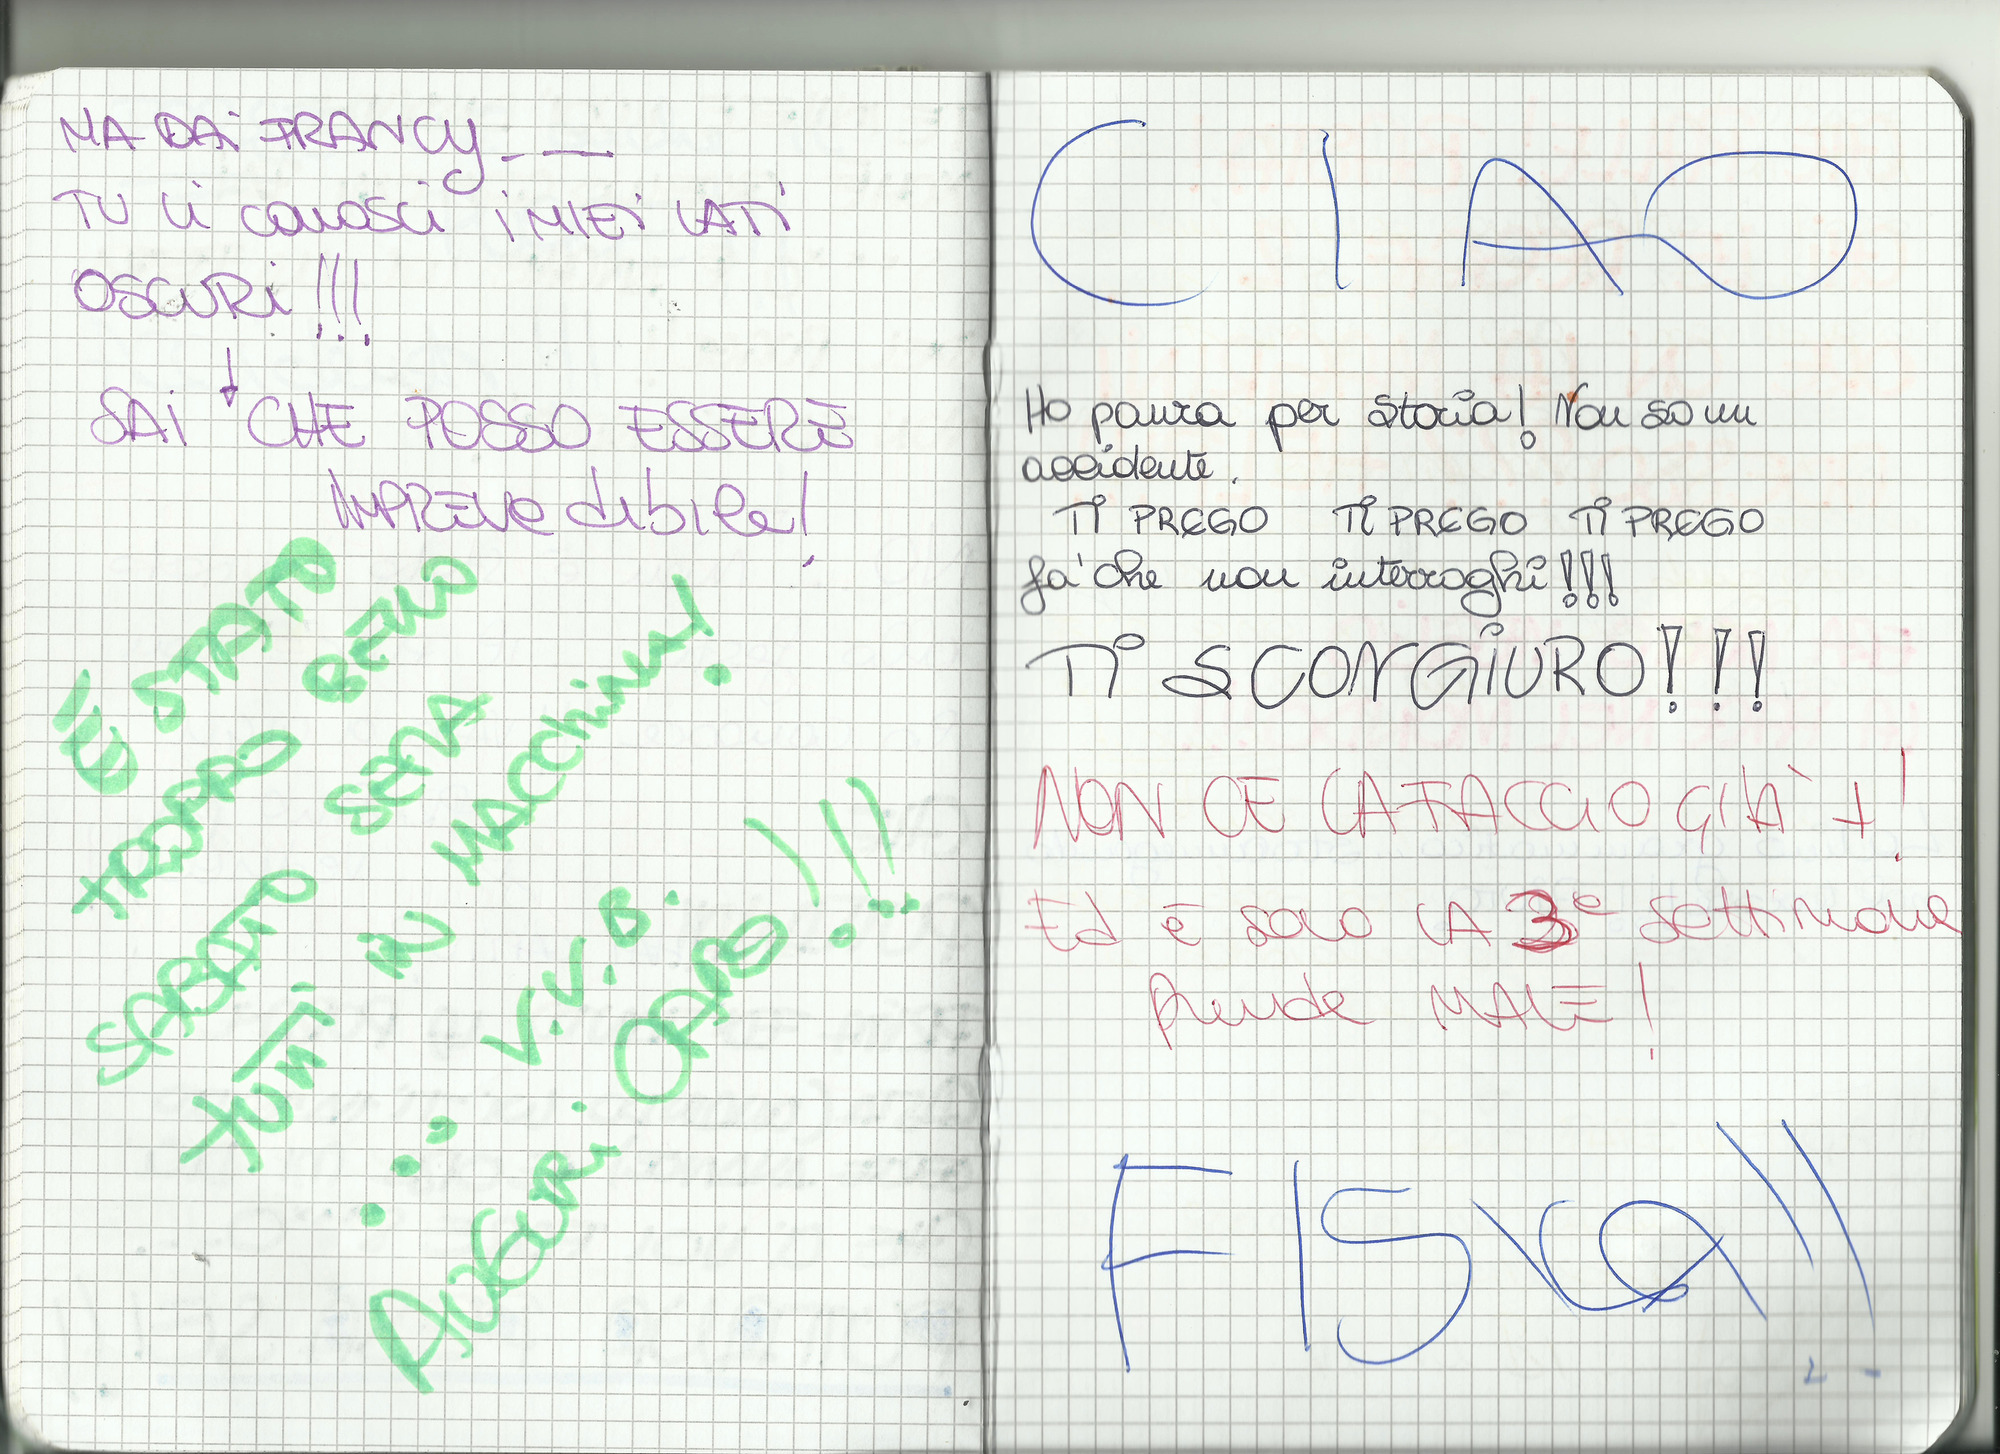 MA DAi FRANCY _ __
TU Li conosci i MIEi LATi
OSCURi !!!
SAi CHE POSSO ESSERE
IMPREVedibile!
È STATO
TROPPO BELLO
SABATO SERA
TUTTi iN MACChina!
... V.V.B.
AUGURi CAPO!!!
CIAO
Ho paura per storia! Non so un
accidente.
Ti PREGO Ti PREGO Ti PREGO
fa' che non interroghi!!!
Ti SCONGiURO!!!
NON CE LA FACCIO GIÀ +!
Ed è solo LA 3e settimana
prende MALE!
FISica!!